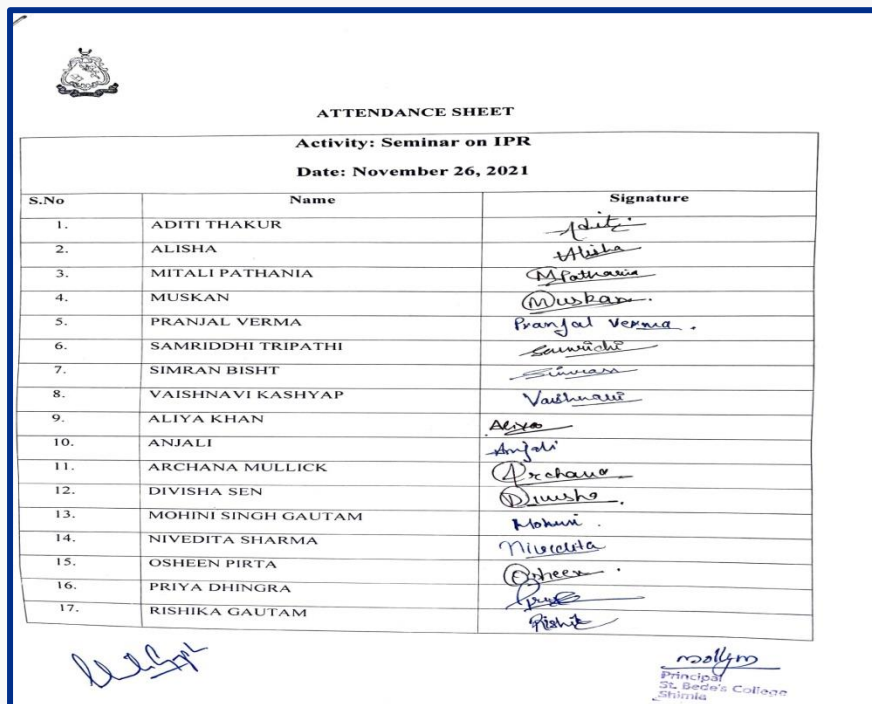 ATTENDANCE SHEET
Activity: Seminar on IPR
Date: November 26, 2021
S.No Name Signature
1. ADITI THAKUR Aditi
2. ALISHA Alisha
3. MITALI PATHANIA MPathania
4. MUSKAN Muskan.
5. PRANJAL VERMA Pranjal Verma.
6. SAMRIDDHI TRIPATHI
7. SIMRAN BISHT Simran
8. VAISHNAVI KASHYAP Vaishnavi
9. ALIYA KHAN Aliya
10. ANJALI Anjali
11. ARCHANA MULLICK Archana
12. DIVISHA SEN Divisha.
13. MOHINI SINGH GAUTAM Mohini.
14. NIVEDITA SHARMA Nivedita
15. OSHEEN PIRTA Osheen.
16. PRIYA DHINGRA Priya
17. RISHIKA GAUTAM Rishik
Principal
St. Bede's College
Shimla